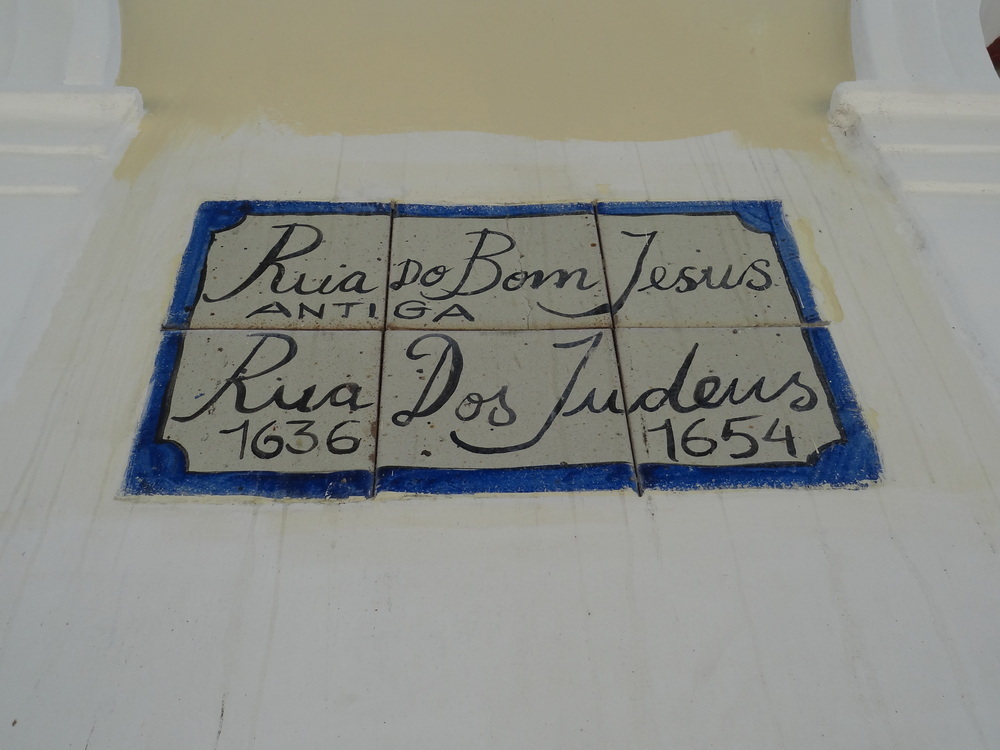 Rua DO Bom Jesus
ANTIGA
Rua Dos Judeus
1636 1654